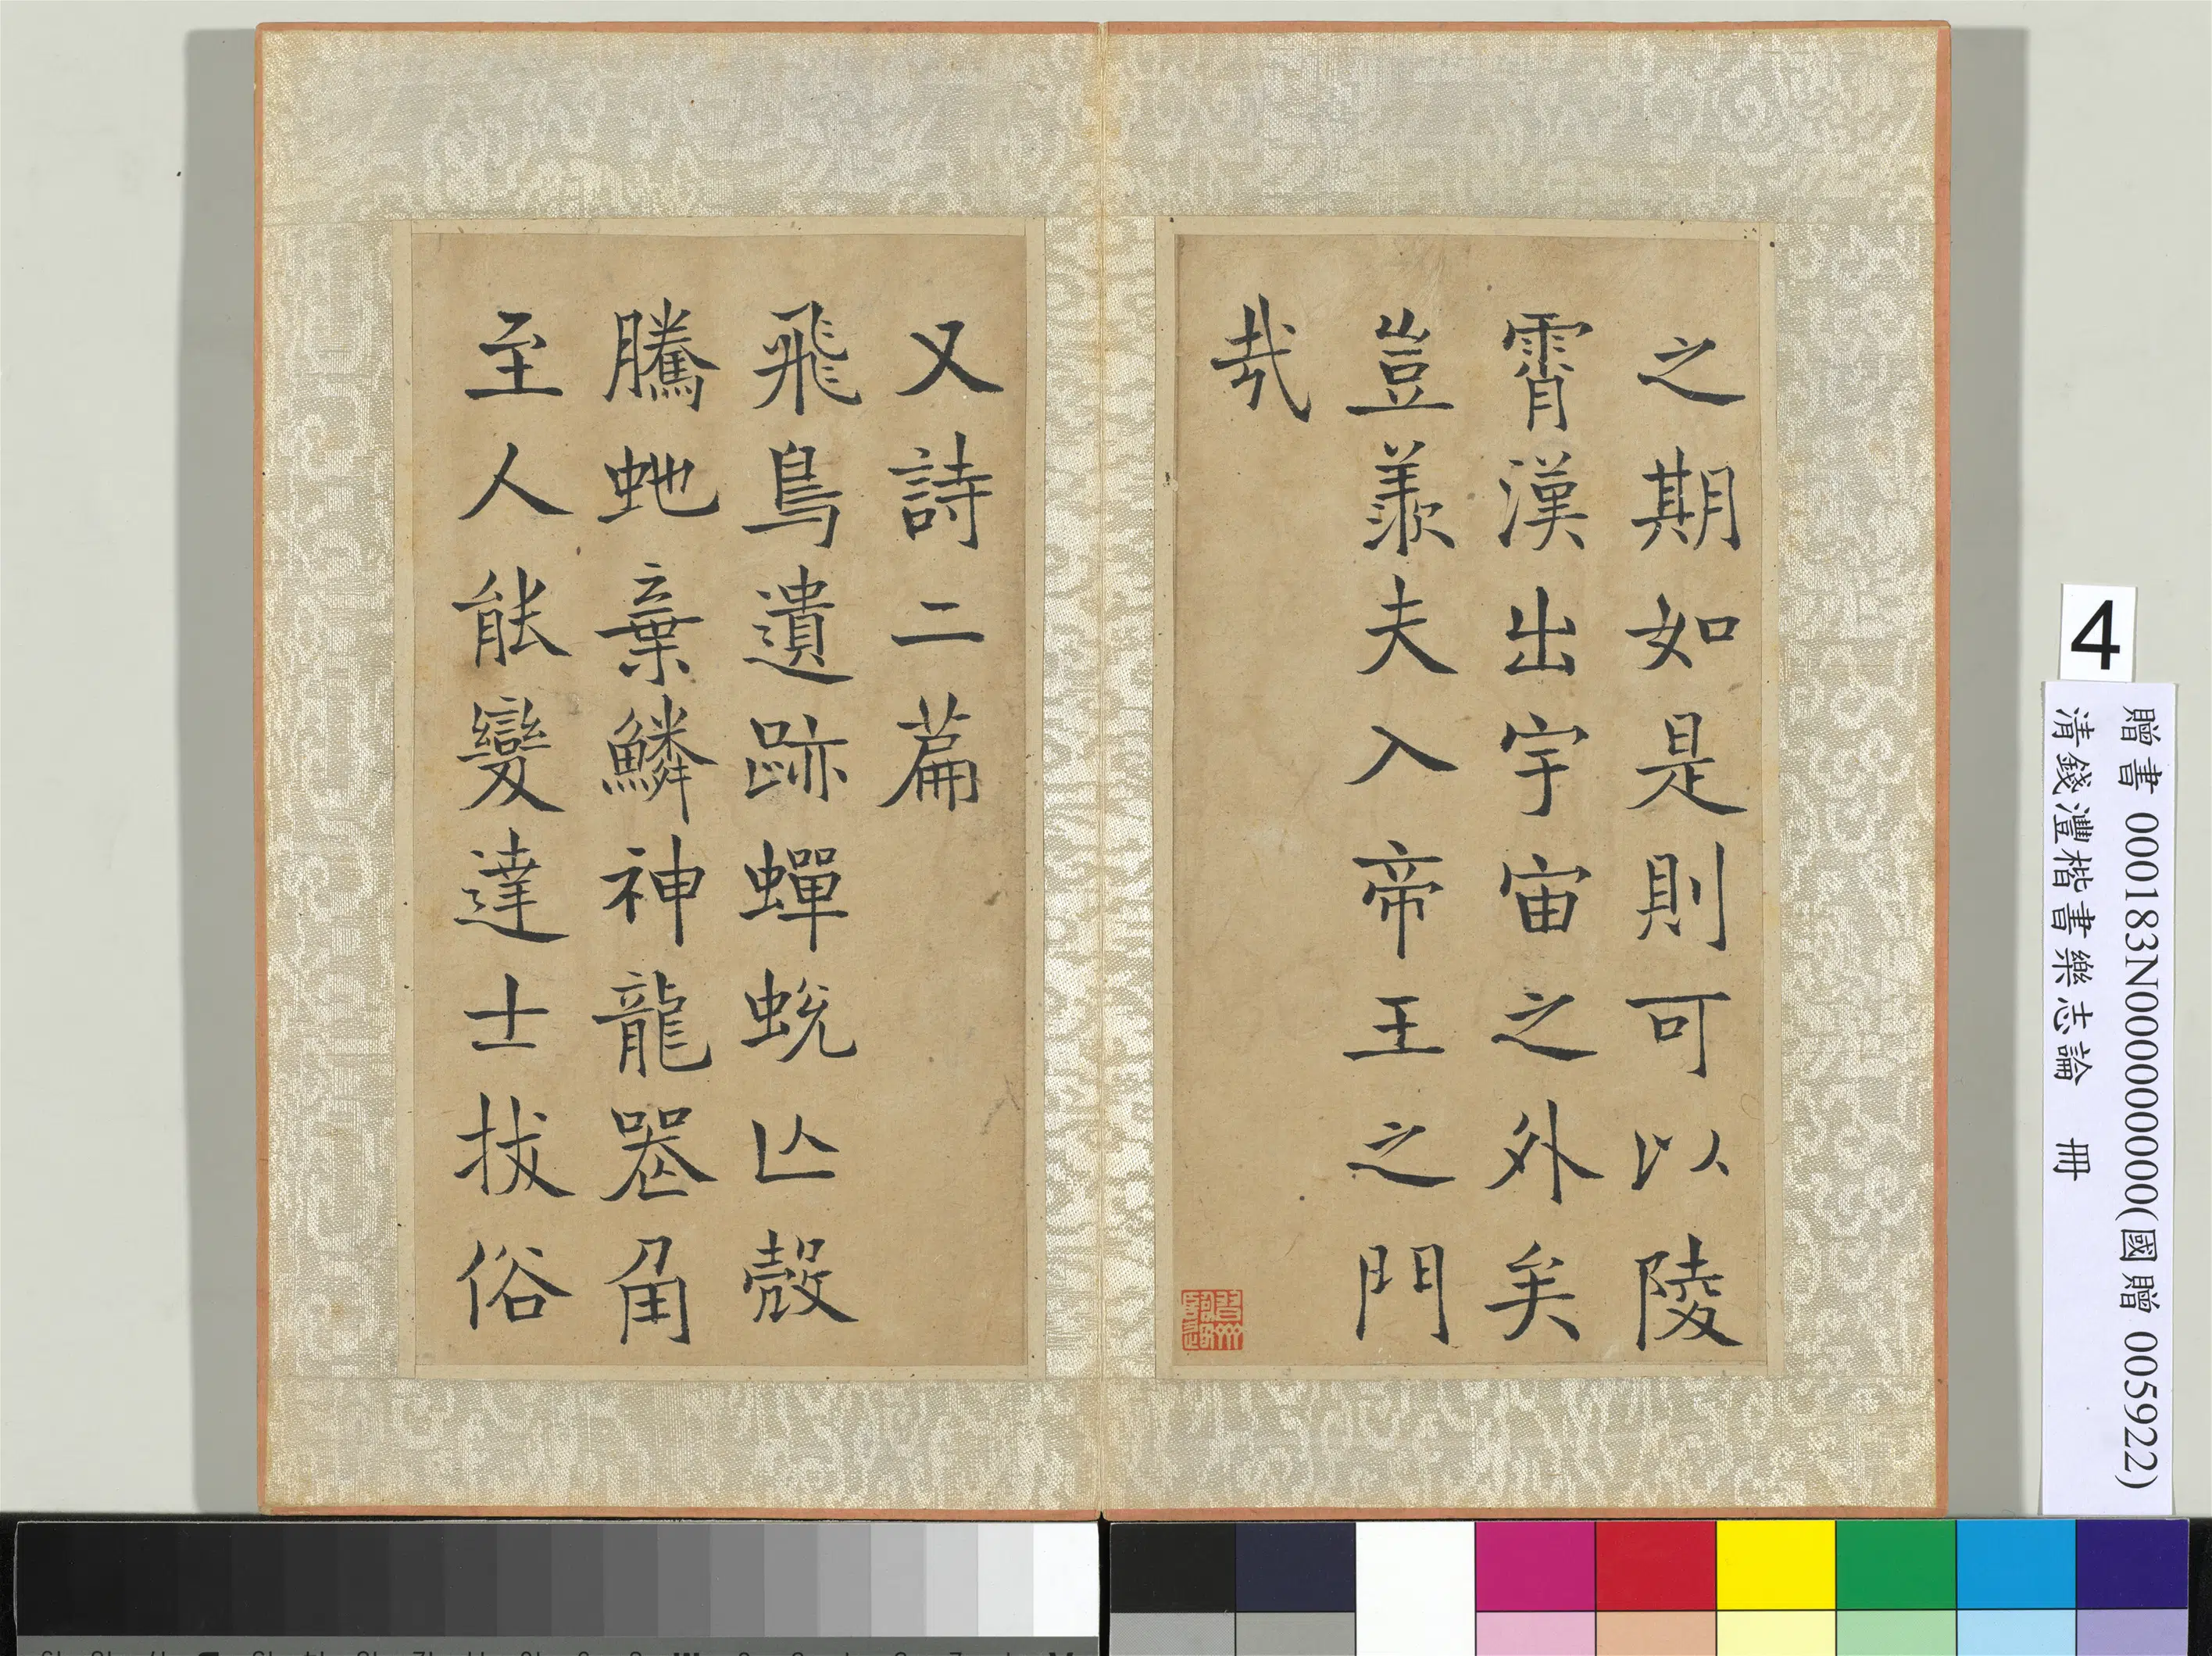 之期如是則可以陵
霄漢出宇宙之外矣
豈羨夫入帝王之門
㢤
又詩二篇
飛鳥遺跡蟬蛻亾殼
騰虵棄鱗神龍䘮角
至人能變達士拔俗
4
贈書 000183N000000000(國贈 005922)
清錢灃楷書樂志論 冊